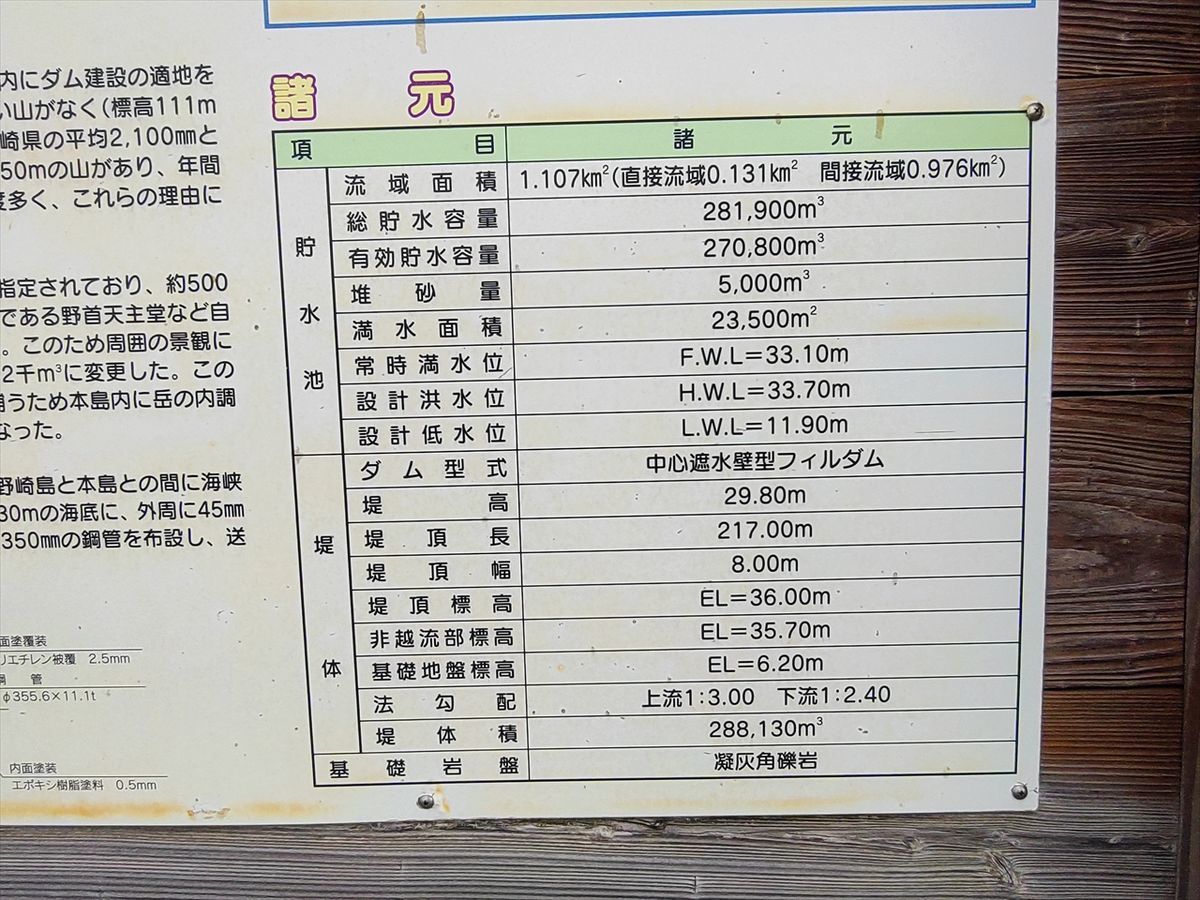 内にダム建設の適地を
い山がなく(標高111m
崎県の平均2,100㎜と
50mの山があり、年間
度多く、これらの理由に
指定されており、約500
である野首天主堂など自
。このため周囲の景観に
2千m³に変更した。この
補うため本島内に岳の内調
なった。
野崎島と本島との間に海峡
30mの海底に、外周に45㎜
350㎜の鋼管を布設し、送
面塗覆装
リエチレン被覆 2.5mm
鋼 管
φ355.6×11.1t
内面塗装
エポキシ樹脂塗料 0.5mm
諸 元
項 目 諸 元
貯水池
流域面積 1.107k㎡(直接流域0.131k㎡ 間接流域0.976k㎡)
総貯水容量 281,900m³
有効貯水容量 270,800m³
堆砂量 5,000m³
満水面積 23,500m²
常時満水位 F.W.L=33.10m
設計洪水位 H.W.L=33.70m
設計低水位 L.W.L=11.90m
堤体
ダム型式 中心遮水壁型フィルダム
堤高 29.80m
堤頂長 217.00m
堤頂幅 8.00m
堤頂標高 EL=36.00m
非越流部標高 EL=35.70m
基礎地盤標高 EL=6.20m
法勾配 上流1:3.00 下流1:2.40
堤体積 288,130m³
基礎岩盤 凝灰角礫岩